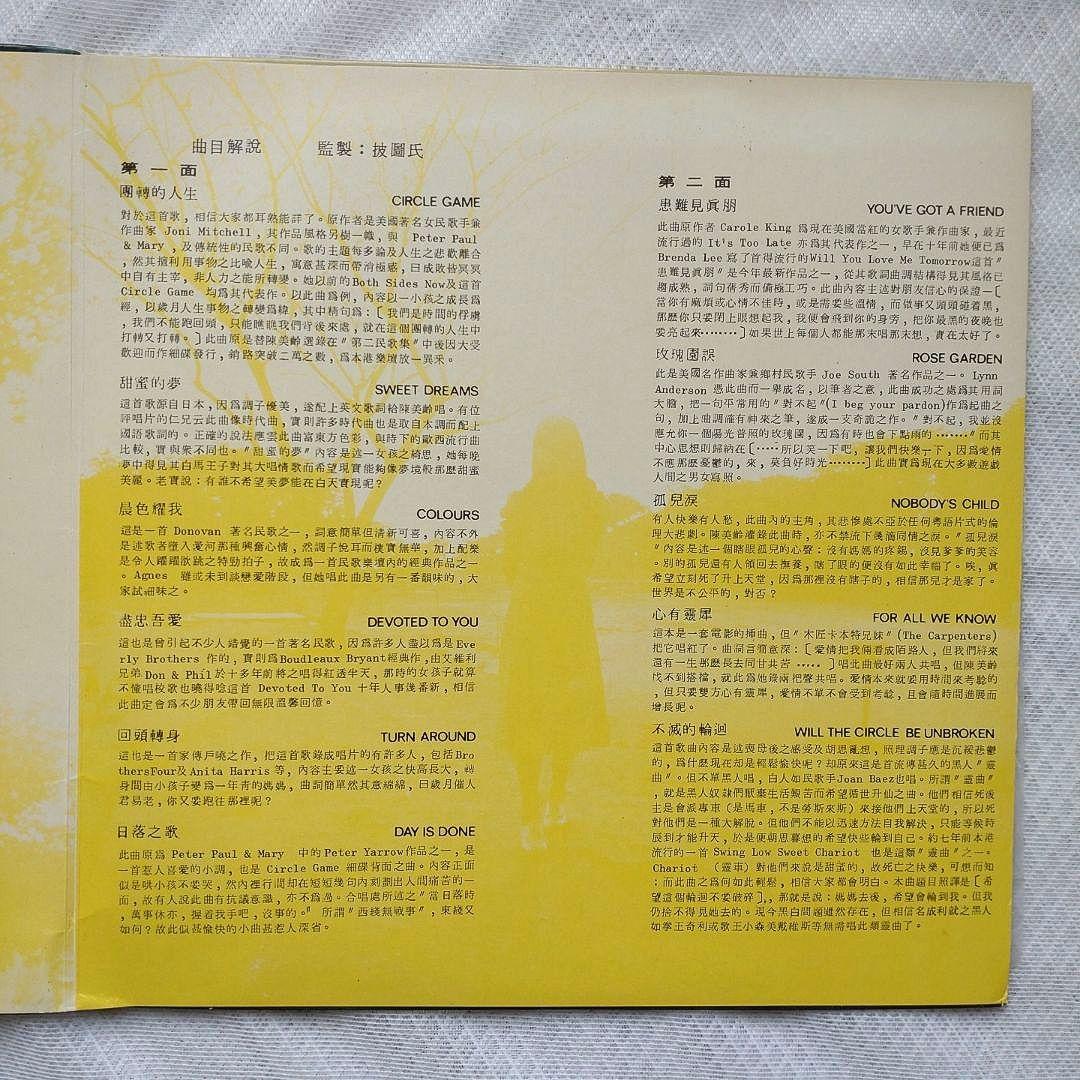 曲目解說 監製：披圖氏
第一面
團轉的人生 CIRCLE GAME
對於這首歌，相信大家都耳熟能詳了。原作者是美國著名女民歌手兼
作曲家 Joni Mitchell，其作品風格另樹一幟，與 Peter Paul
& Mary，及傳統性的民歌不同。歌的主題每多論及人生之悲歡離合
，然其擅利用事物之比喻人生，寓意甚深而帶消極感，曰成敗皆冥冥
中自有主宰，非人力之能所轉變。她以前的Both Sides Now及這首
Circle Game 均為其代表作。以此曲為例，內容以一小孩之成長為
經，以歲月人生事物之轉變為緯，其中精句為：〔我們是時間的俘虜
，我們不能跑回頭，只能瞧瞧我們背後來處，就在這個團轉的人生中
打轉又打轉。〕此曲原是替陳美齡選錄在〝第二民歌集〞中後因大受
歡迎而作細碟發行，銷路突破二萬之數，為本港樂壇放一異釆。
甜蜜的夢 SWEET DREAMS
這首歌源自日本，因為調子優美，遂配上英文歌詞給陳美齡唱。有位
評唱片的仁兄云此曲像時代曲，實則許多時代曲也是取自本調而配上
國語歌詞的。正確的說法應雲此曲富東方色彩，與時下的歐西流行曲
比較，實與衆不同也。〝甜蜜的夢〞內容是述一女孩之綺思，她每晚
夢中得見其白馬王子對其大唱情歌而希望現實能夠像夢境般那麼甜蜜
美麗。老實說：有誰不希望美夢能在白天實現呢？
晨色耀我 COLOURS
這是一首 Donovan 著名民歌之一，詞意簡單但清新可喜，內容不外
是述歌者墮入愛河那種興奮心情，然調子悅耳而樸實無華，加上配樂
是令人躍躍欲跳之特勁拍子，故成為一首民歌樂壇內的經典作品之一
。Agnes 雖或未到談戀愛階段，但她唱此曲是另有一番韻味的，大
家試細味之。
盡忠吾愛 DEVOTED TO YOU
這也是曾引起不少人錯覺的一首著名民歌，因為許多人盡以為是Eve
rly Brothers 作的，實則為Boudleaux Bryant經典作，由艾維利
兄弟 Don & Phil於十多年前將之唱得紅透半天，那時的女孩子就算
不懂唱校歌也曉得唸這首 Devoted To You 十年人事幾番新，相信
此曲定會為不少朋友帶回無限溫馨回憶。
回頭轉身 TURN AROUND
這也是一首家傳戶曉之作，把這首歌錄成唱片的有許多人，包括Bro
thersFour及Anita Harris 等，內容主要述一女孩之快高長大，轉
身間由小孩子變為一年青的媽媽，曲詞簡單然其意綿綿，曰歲月催人
君易老，你又要跑往那裡呢？
日落之歌 DAY IS DONE
此曲原為 Peter Paul & Mary 中的 Peter Yarrow作品之一，是
一首惹人喜愛的小調，也是 Circle Game 細碟背面之曲。內容正面
似是哄小孩不要哭，然內裡行間却在短短幾句內刻劃出人間痛苦的一
面，故有人說此曲有抗議意識，亦不為過。合唱處所述之〝當日落時
，萬事休亦，握着我手吧，沒事的。〞所謂〝西綫無戰事〞，東綫又
如何？故此似甚愉快的小曲甚惹人深省。
第二面
患難見眞朋 YOU'VE GOT A FRIEND
此曲原作者 Carole King 為現在美國當紅的女歌手兼作曲家，最近
流行過的 It's Too Late 亦為其代表作之一，早在十年前她便已為
Brenda Lee 寫了首得流行的Will You Love Me Tomorrow這首〝
患難見眞朋〞是今年最新作品之一，從其歌詞曲調結構得見其風格已
趨成熟，詞句雋秀而備極工巧。此曲內容主述對朋友信心的保證—〔
當你有麻煩或心情不佳時，或是需要些溫情，而做事又頭頭碰着黑，
那麼你只要閉上眼想起我，我便會飛到你的身旁，把你最黑的夜晚也
要亮起來········〕如果世上每個人都能那末唱那末想，實在太好了。
玫瑰園誤 ROSE GARDEN
此是美國名作曲家兼鄉村民歌手 Joe South 著名作品之一。Lynn
Anderson 憑此曲而一舉成名，以筆者之意，此曲成功之處為其用詞
大膽，把一句平常用的〝對不起〞(I beg your pardon)作為起曲之
句，加上曲調確有神來之筆，遂成一支奇詭之作。〝對不起，我並沒
應允你一個陽光普照的玫瑰園，因為有時也會下點雨的········〞而其
中心思想則歸納在〔·····所以笑一下吧，讓我們快樂一下，因為愛情
不應那麼憂鬱的，來，莫負好時光········〕此曲實為現在大多數遊戲
人間之男女寫照。
孤兒淚 NOBODY'S CHILD
有人快樂有人愁，此曲內的主角，其悲慘處不亞於任何粤語片式的倫
理大悲劇。陳美齡灌錄此曲時，亦不禁流下幾滴同情之淚。〝孤兒淚
〞內容是述一個瞎眼孤兒的心聲：沒有媽媽的疼錫，沒見爹爹的笑容
。別的孤兒還有人領回去撫養，瞎了眼的便沒有如此幸福了。唉，眞
希望立刻死了升上天堂，因為那裡沒有瞎子的，相信那兒才是家了。
世界是不公平的，對否？
心有靈犀 FOR ALL WE KNOW
這本是一套電影的揷曲，但〝木匠卡本特兄妹〞(The Carpenters)
把它唱紅了。曲詞言簡意深：〔愛情把我倆看成陌路人，但我們將來
還有一生那麼長去同甘共苦 ·····〕唱此曲最好兩人共唱，但陳美齡
找不到搭檔，就此為她錄兩把聲共唱。愛情本來就要用時間來考諗的
，但只要雙方心有靈犀，愛情不單不會受到考諗，且會隨時間進展而
增長呢。
不滅的輪迴 WILL THE CIRCLE BE UNBROKEN
這首歌曲內容是述喪母後之感受及胡思亂想，照理調子應是沉緩悲鬱
的，為什麼現在却是輕鬆愉快呢？却原來這是首流傳甚久的黑人〝靈
曲〞。但不單黑人唱，白人如民歌手Joan Baez也唱。所謂〝靈曲〞
，就是黑人奴隸們厭棄生活艱苦而希望循世升仙之曲。他們相信死後
主是會派專車（是馬車，不是勞斯來斯）來接他們上天堂的，所以死
對他們是一種大解脫。但他們不能以迅速方法自我解決，只能等候時
辰到才能升天，於是便朝思暮想的希望快些輪到自己。約七年前本港
流行的一首 Swing Low Sweet Chariot 也是這類〝靈曲〞之一。
Chariot （靈車）對他們來說是甜蜜的，故死亡之快樂，可想而知
；而此曲之為何如此輕鬆，相信大家都會明白。本曲題目照譯是〔希
望這個輪迴不要破碎〕，，那就是說：媽媽去後，希望會輪到我。但我
仍捨不得見她去的。現今黑白問題雖然存在，但相信名成利就之黑人
如拳王奇利或歌王小森美戴維斯等無需唱此類靈曲了。